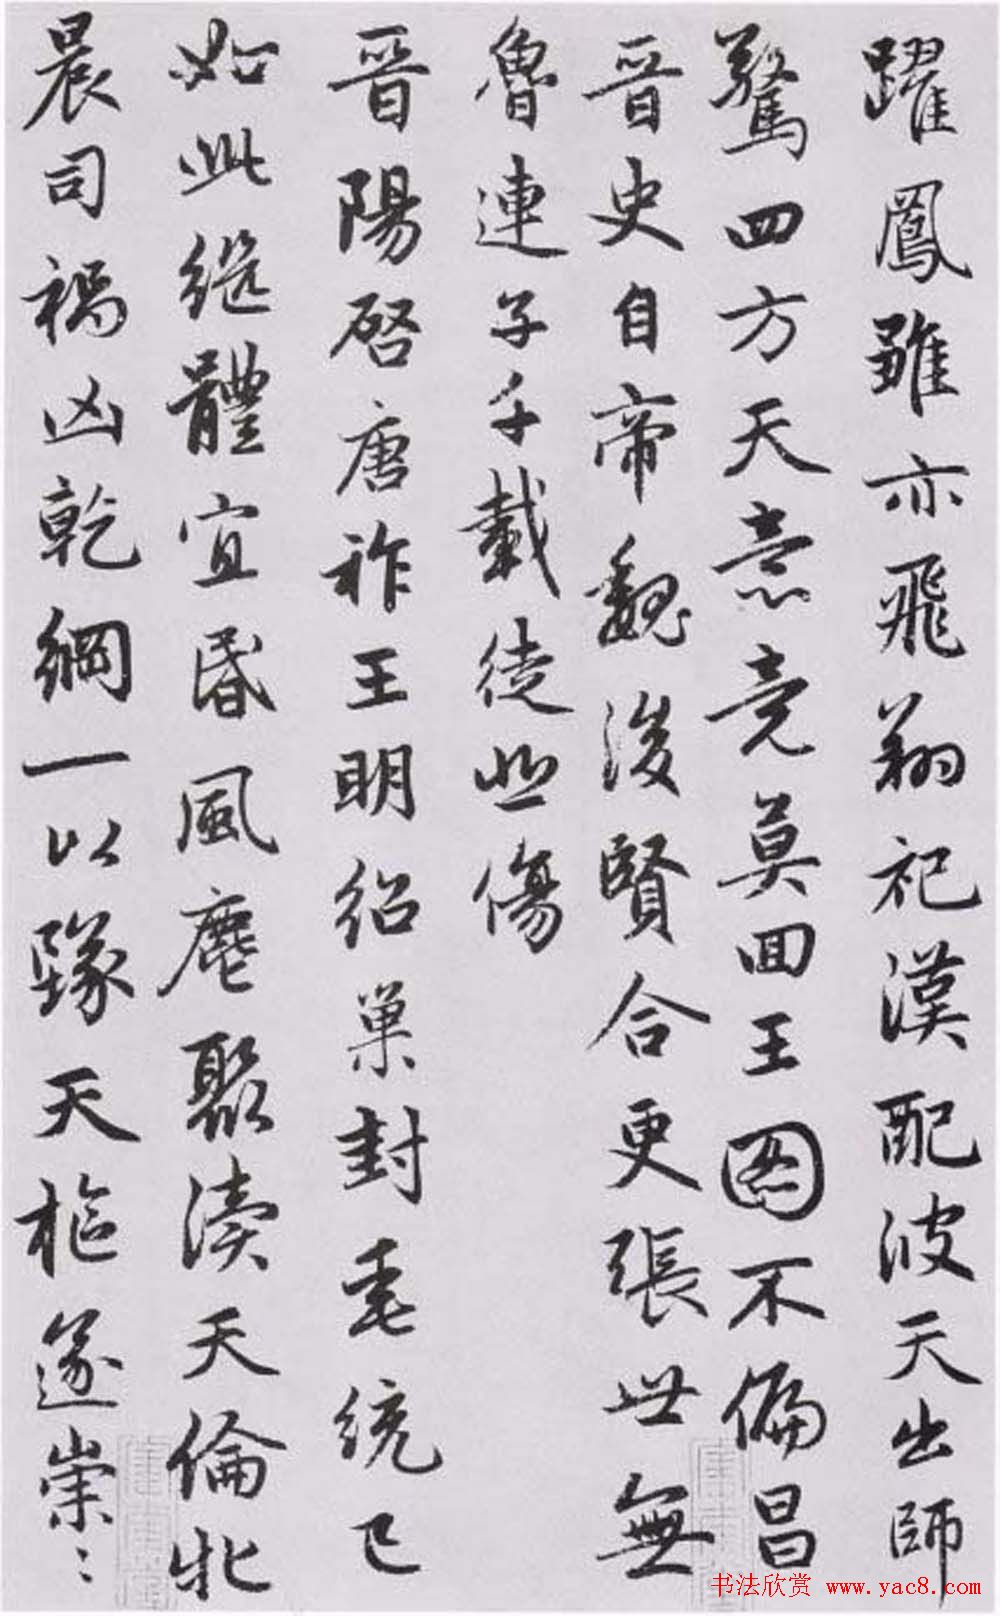 躍鳳雖亦飛翔祀漢配彼天出師
驚四方天意竟莫回王圖不偏昌
晉史自帝魏後賢合更張世無
魯連子千載徒悲傷
晉陽啓唐祚王明紹巢封垂統已
如此繼體宜昏風麀聚瀆天倫牝
晨司禍凶乾綱一以墜天樞遂崇〻
书法欣赏 www.yac8.com